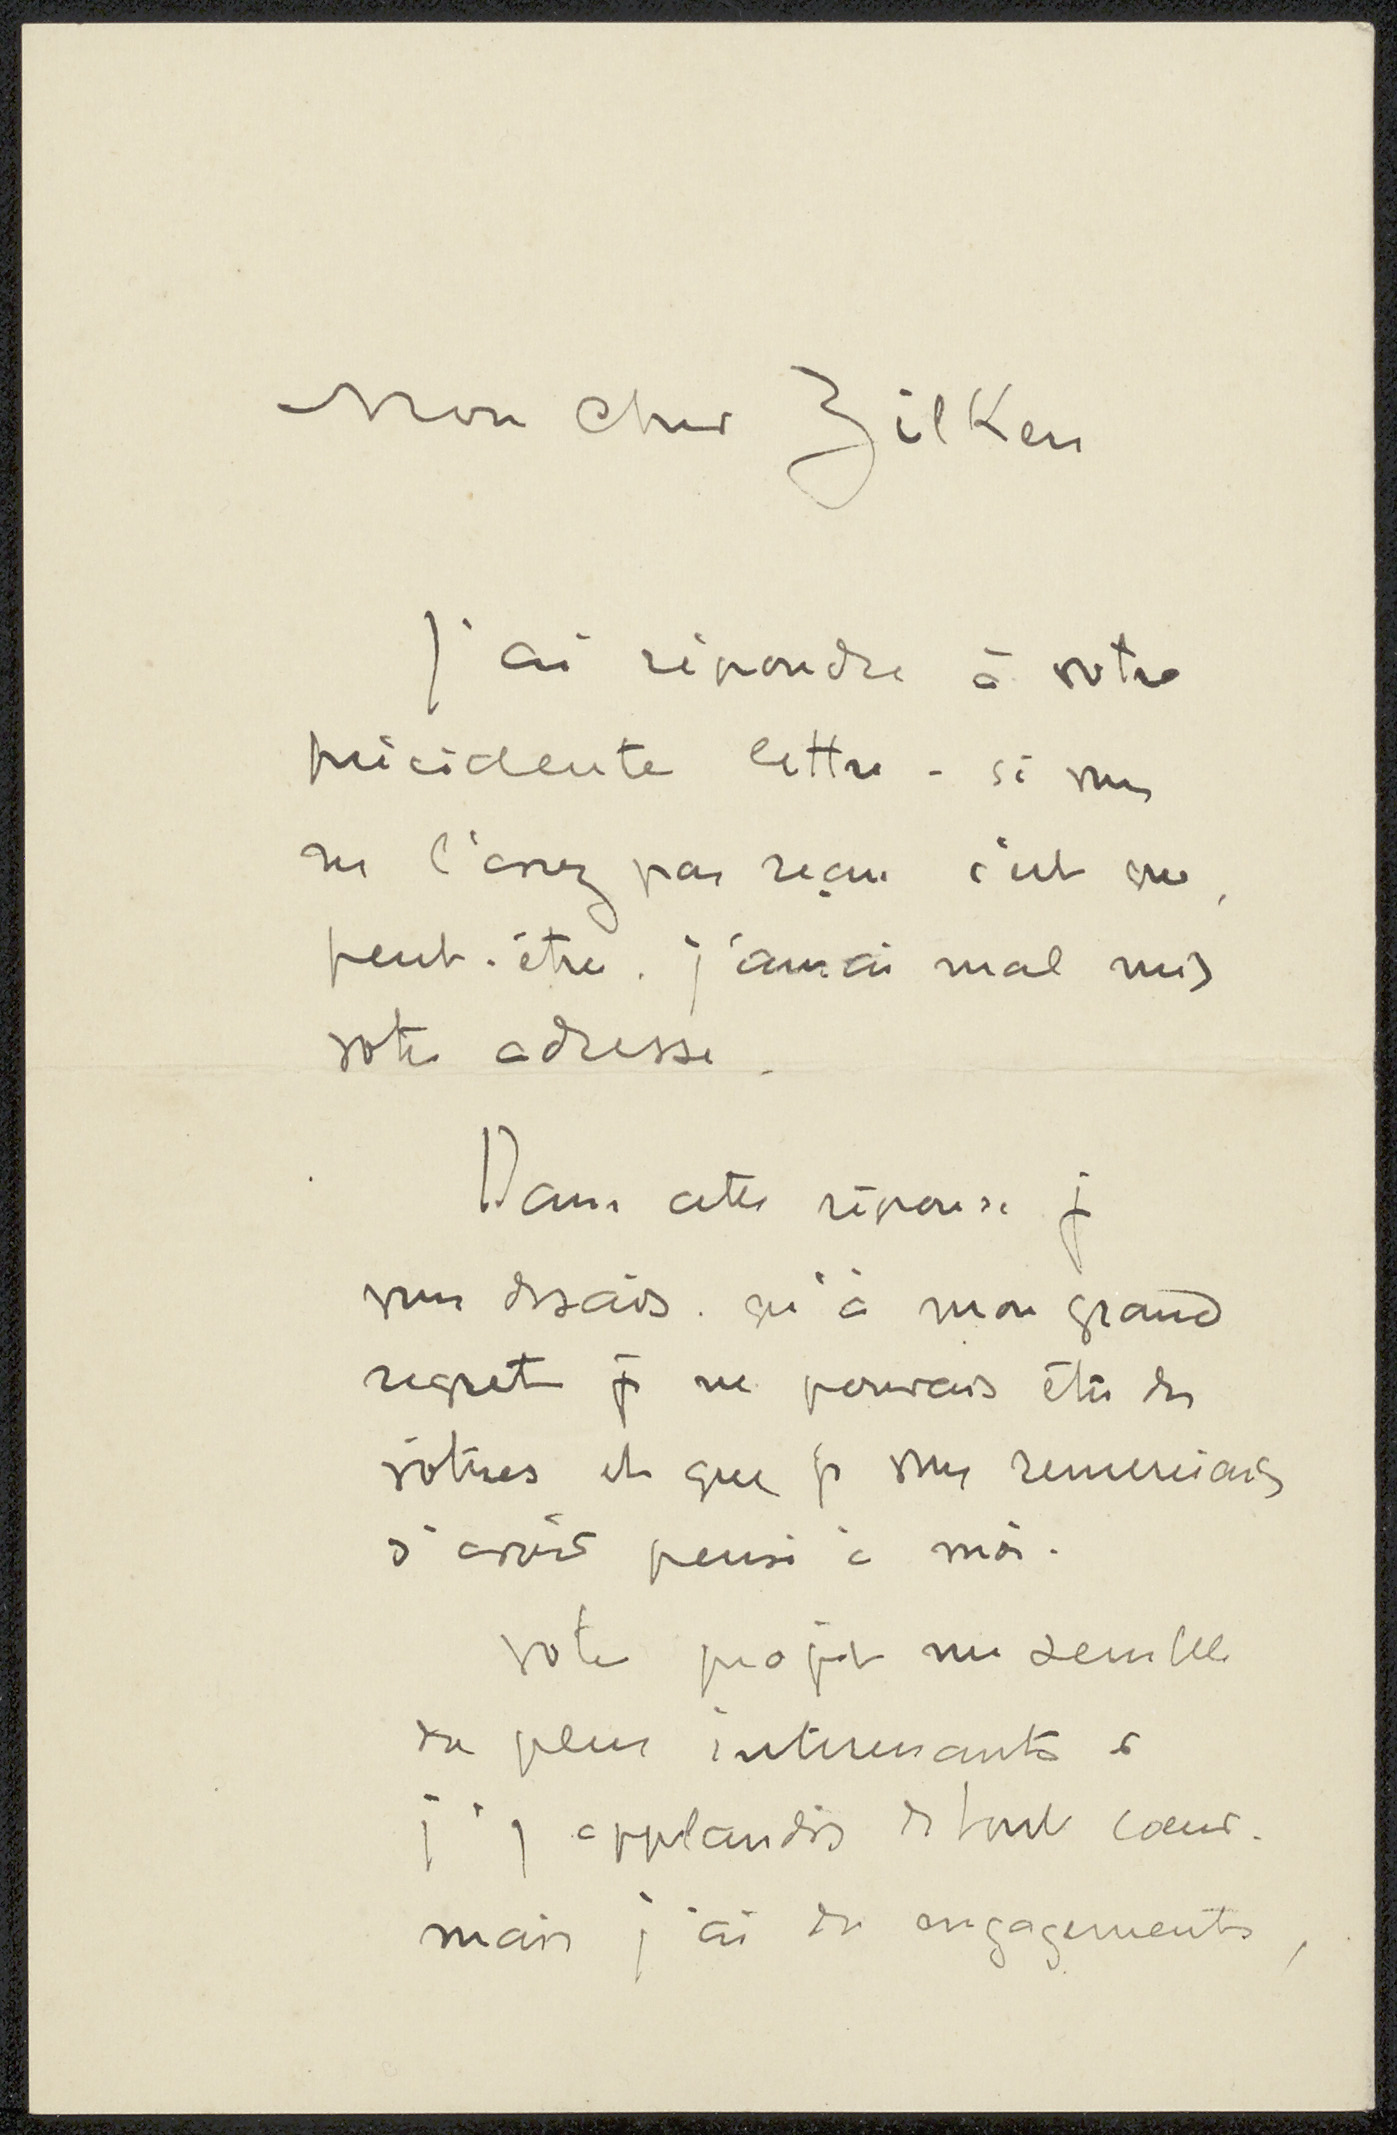 Mon cher Zilken
J'ai répondre à votre
précédente lettre - si vous
ne l'avez pas reçue c'est que,
peut-être. j'aurai mal mis
votre adresse.
Dans cette réponse je
vous disais. qu'à mon grand
regret je ne pouvais être des
vôtres et que je vous remerciais
d'avoir pensé à moi.
votre projet me semble
des plus intéressants et
j'y applaudis de tout coeur.
mais j'ai des engagements,